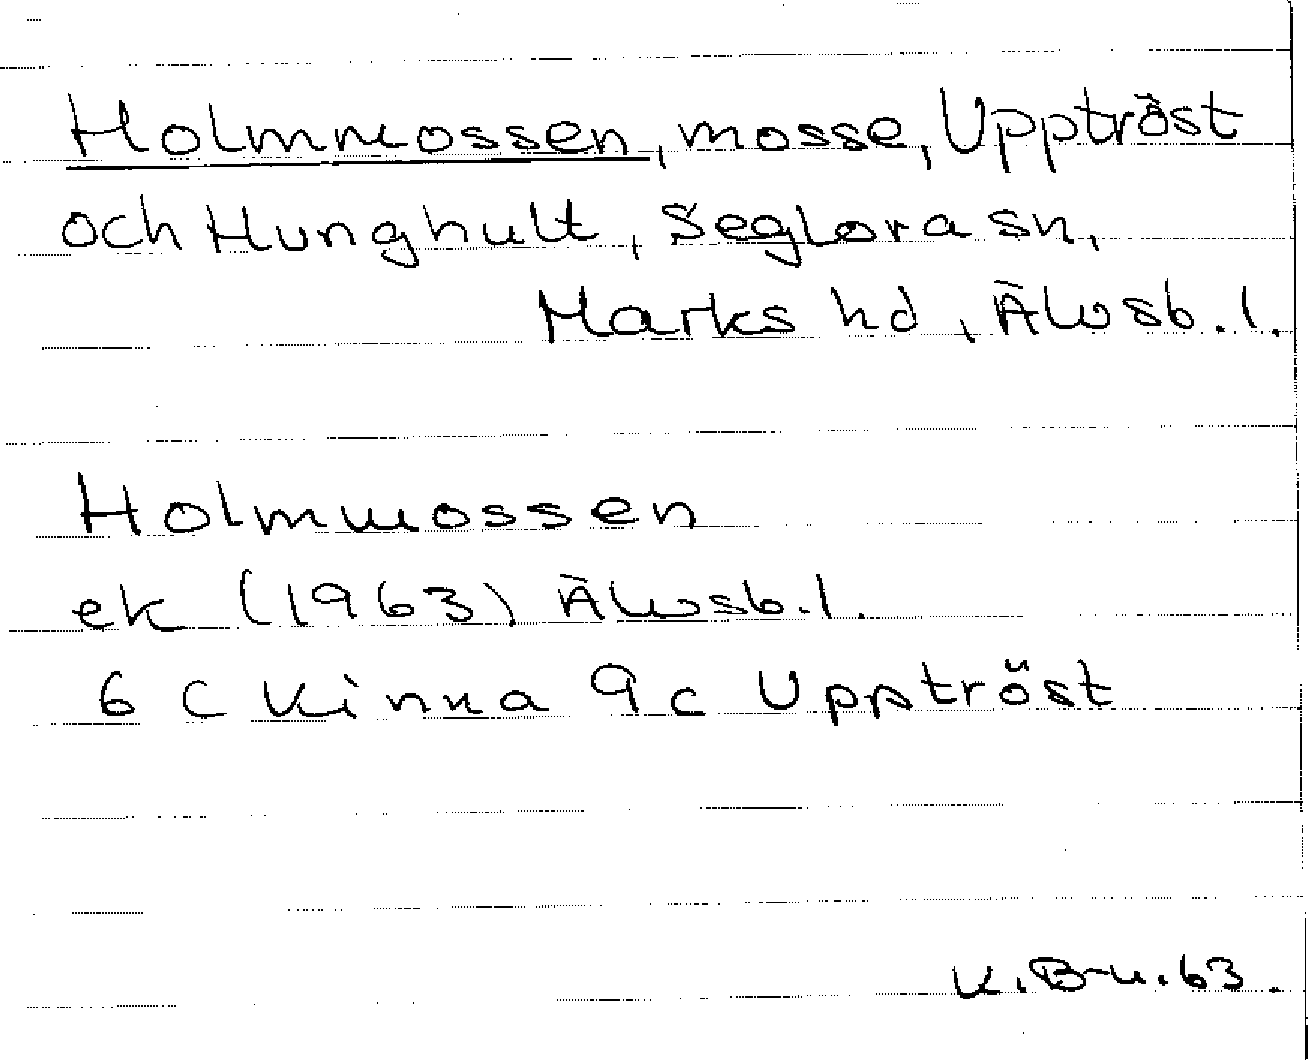 Holmmossen, mosse, Upptröst
och Hunghult, Seglora sn,
Marks hd, Älvsb. l.
Holmmossen
ek (1963) Älvsb. l.
6 C Kinna 9 c Upptröst
K. B-n. 63.